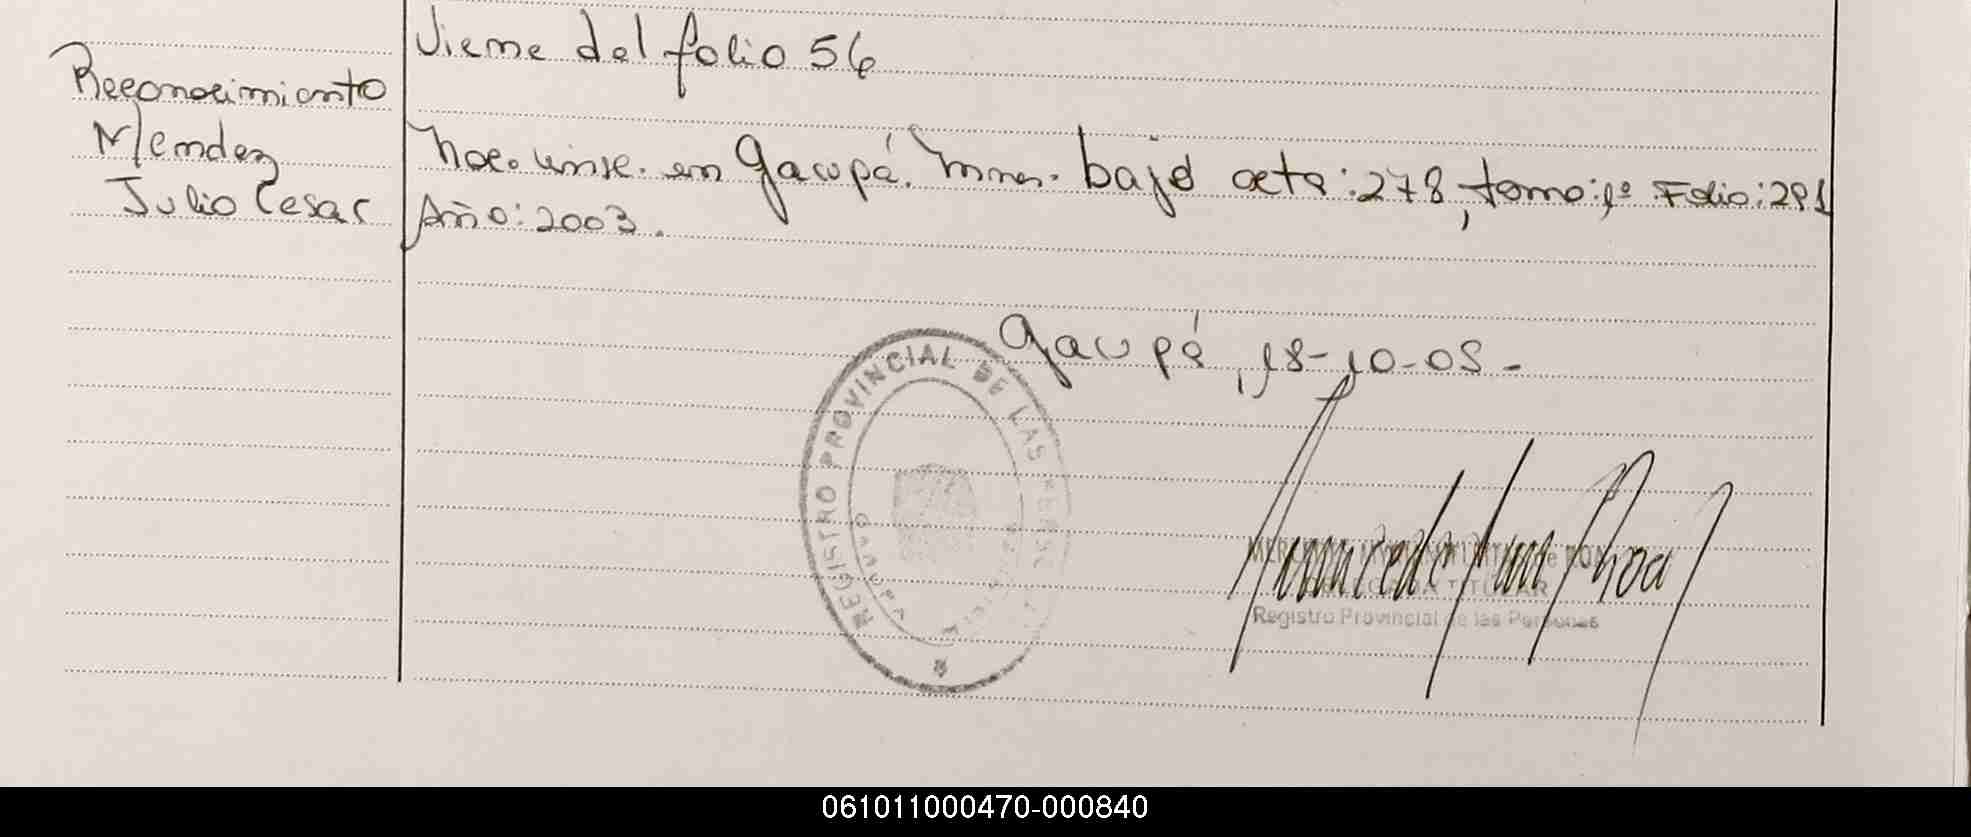 Viene del folio 56
Reconocimiento
Mendez
Julio Cesar
Nac. insc. en Garupá. Mnes. bajo acta: 278, tomo: 1º Folio: 291
Año: 2003.
Garupá, 18-10-05.-
REGISTRO PROVINCIAL DE LAS
GARUPA
DELEGADA TITULAR
Registro Provincial de las Personas
061011000470-000840